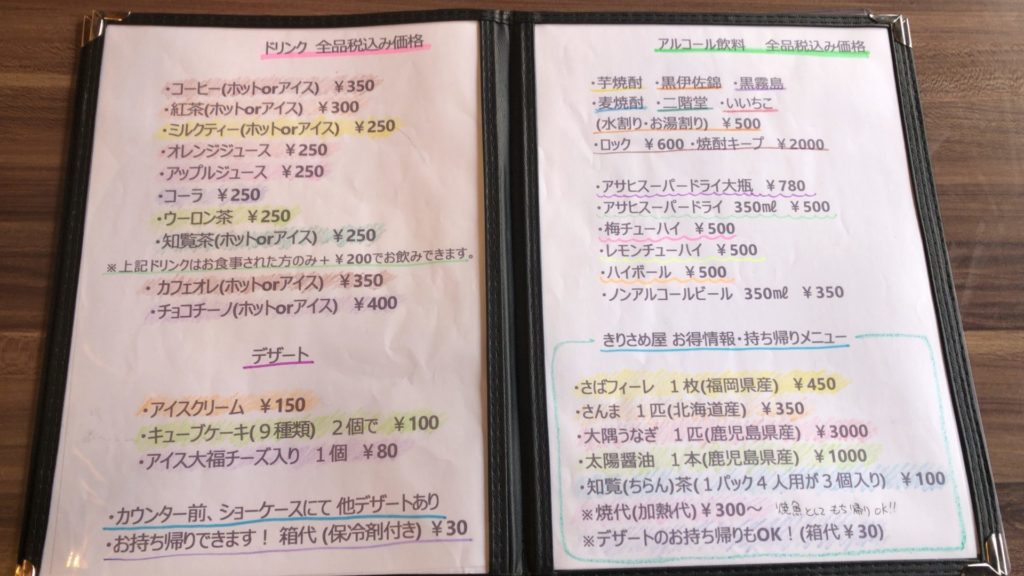 ドリンク 全品税込み価格
・コーヒー(ホットorアイス) ￥350
・紅茶(ホットorアイス) ￥300
・ミルクティー(ホットorアイス) ￥250
・オレンジジュース ￥250
・アップルジュース ￥250
・コーラ ￥250
・ウーロン茶 ￥250
・知覧茶(ホットorアイス) ￥250
※上記ドリンクはお食事された方のみ＋￥200でお飲みできます。
・カフェオレ(ホットorアイス) ￥350
・チョコチーノ(ホットorアイス) ￥400
デザート
・アイスクリーム ￥150
・キューブケーキ(９種類) ２個で ￥100
・アイス大福チーズ入り １個 ￥80
・カウンター前、ショーケースにて 他デザートあり
・お持ち帰りできます！ 箱代 (保冷剤付き) ￥30
アルコール飲料 全品税込み価格
・芋焼酎 ・黒伊佐錦 ・黒霧島
・麦焼酎 ・二階堂 ・いいちこ
(水割り・お湯割り) ￥500
・ロック ￥600 ・焼酎キープ ￥2000
・アサヒスーパードライ大瓶 ￥780
・アサヒスーパードライ 350㎖ ￥500
・梅チューハイ ￥500
・レモンチューハイ ￥500
・ハイボール ￥500
・ノンアルコールビール 350㎖ ￥350
きりさめ屋 お得情報・持ち帰りメニュー
・さばフィーレ １枚(福岡県産) ￥450
・さんま １匹(北海道産) ￥350
・大隅うなぎ １匹(鹿児島県産) ￥3000
・太陽醤油 １本(鹿児島県産) ￥1000
・知覧(ちらん)茶(１パック４人用が３個入り) ￥100
※焼代(加熱代)￥300～ 焼魚としてもち帰りOK!!
※デザートのお持ち帰りもOK！(箱代￥30)